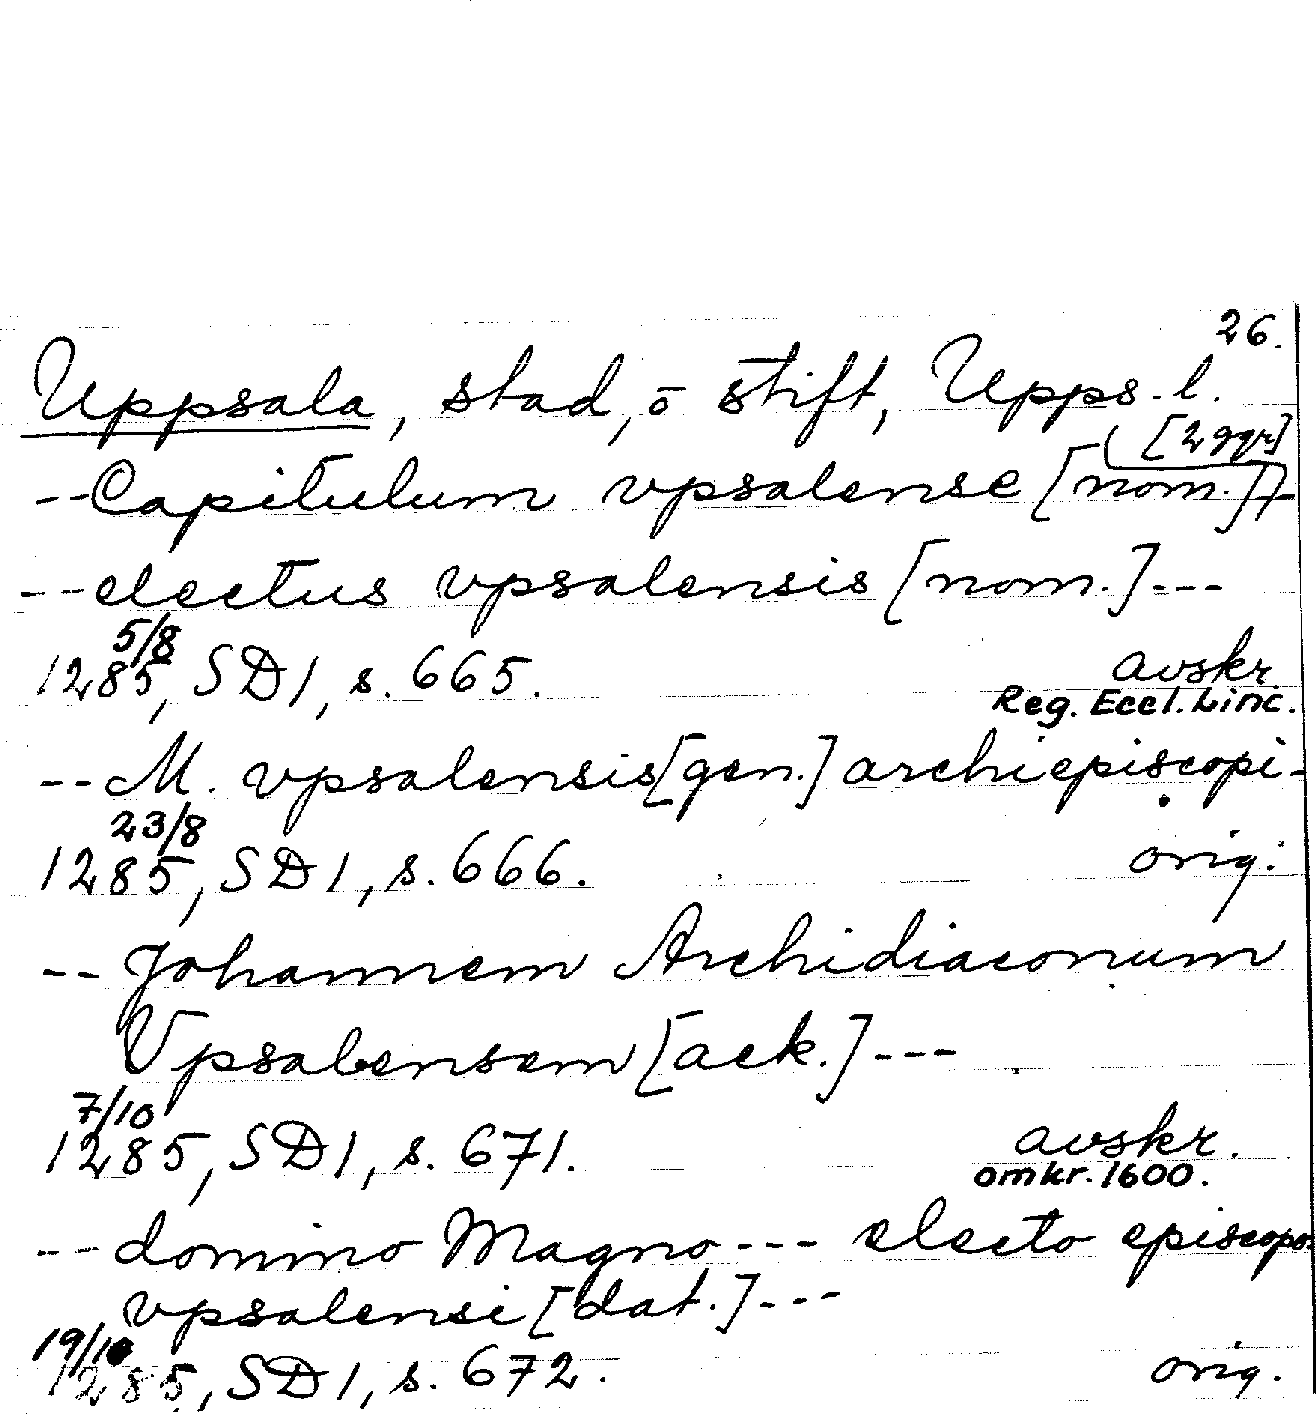 26.
Uppsala, stad, o stift, Upps. l.
[2 ggr]
--Capitulum vpsalense [nom.]--
--electus vpsalensis [nom.]---
5/8
1285, SD 1, s. 665. avskr.
Reg. Eccl. Linc.
--M. vpsalensis [gen.] archiepiscopi-
23/8
1285, SD 1, s. 666. orig.
-- Johannem Archidiaconum
Vpsalensem [ack.]---
7/10
1285, SD 1, s. 671. avskr.
omkr. 1600.
--domino Magno--- electo episcopo
vpsalensi [dat.]---
19/10
1285, SD 1, s. 672. orig.